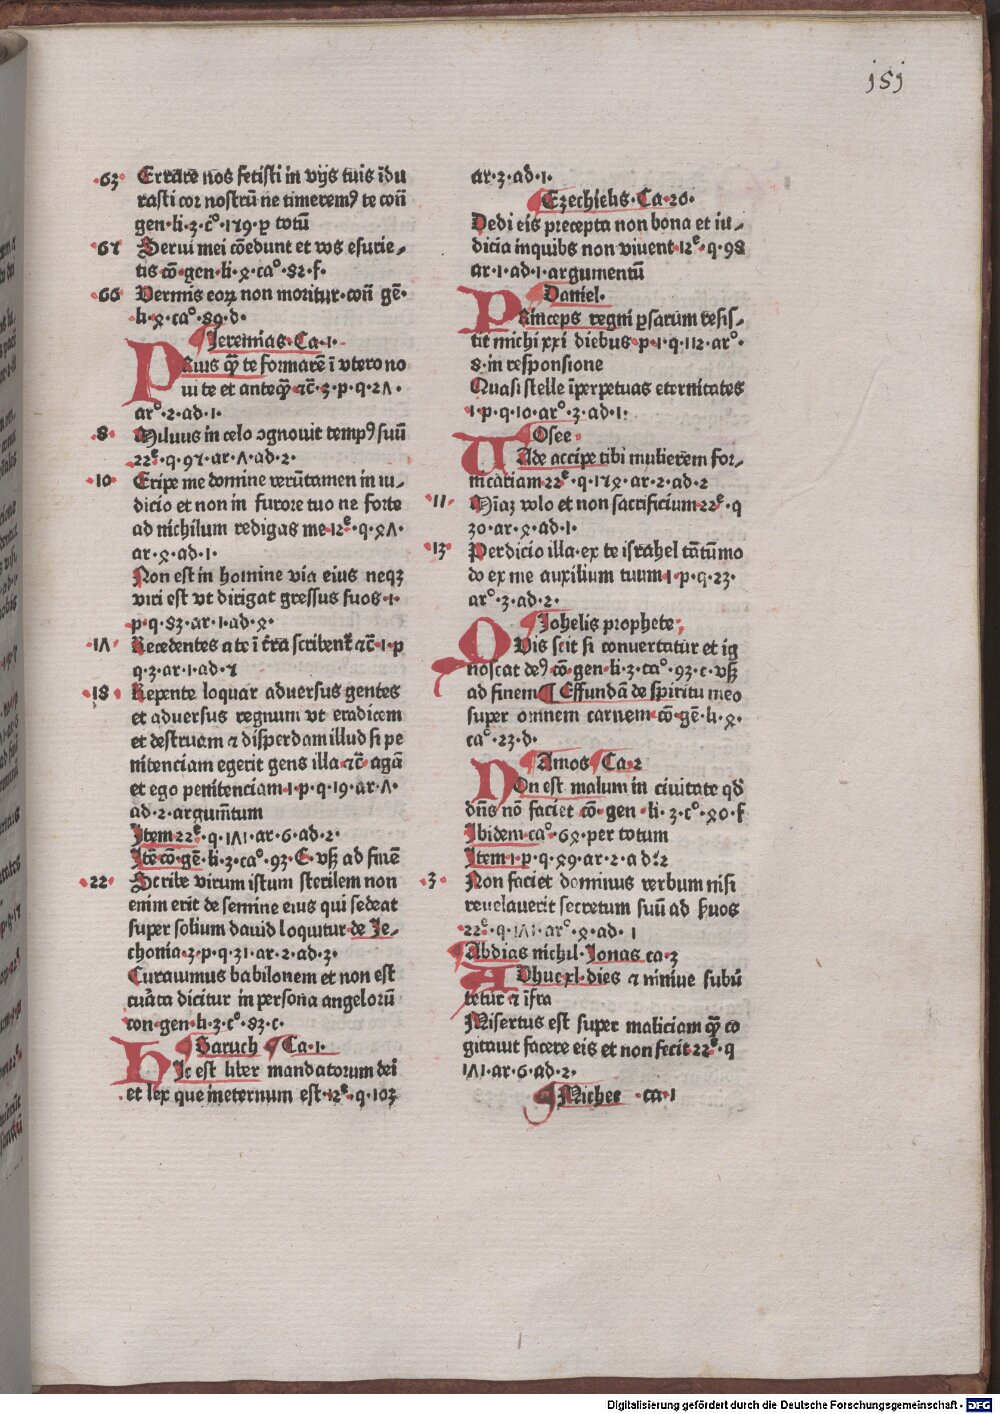 151
·63· Errare nos fecisti in vijs tuis īdu
rasti cor nostrū ne timeremꝰ te con̄
gen·li·3·c°·179·ꝑ totū
67 Serui mei cōedunt et vos esurie⸗
tis cō·gen·li·4·ca°·82·f·
·66 Vermis eoꝝ non moritur·con̄ gē·
li·4·ca°·89·d·
Jeremias·Ca·1·
PRius qꝫ te formarē ī vtero no
ui te et anteqꝫ ⁊c̄·3·p·q·27·
ar°·2·ad·1·
·8· Miluus in celo ↄgnouit tempꝰ suū
22e·q·95·ar·7·ad·2·
·10· Eripe me domine verūtamen in iu⸗
dicio et non in furore tuo ne forte
ad nichilum redigas me·12e·q·47·
ar·4·ad·1·
Non est in homine via eius neqꝫ
viri est vt dirigat gressus suos·1·
p·q·83·ar·1·ad·4·
·17· Recedentes a te ī t̄ra scribent᷑ ⁊c̄·1·p
q·3·ar·1·ad·5
·18· Repente loquar aduersus gentes
et aduersus regnum vt eradicem
et destruam ⁊ disperdam illud si pe
nitenciam egerit gens illa ⁊c̄ agā
et ego penitenciam·1·p·q·19·ar·7·
ad·2·argumn̄tum
Item 22e·q·171·ar·6·ad·2·
Itē cō·gē·li·3·ca°·93·E·vsqꝫ ad finē
·22· Scribe virum istum sterilem non
enim erit de semine eius qui sedeat
super solium dauid loquitur de Je⸗
chonia·3·p·q·31·ar·2·ad·3·
Curauimus babilonem et non est
curāta dicitur in persona angelorū
con·gen·li·3·c°·83·c·
Baruch Ca·1·
HIc est liber mandatorum dei
et lex que ineternum est·12e·q·103
ar·3·ad·1·
Ezechielis·Ca·20·
Dedi eis precepta non bona et iu⸗
dicia inquibs non viuent·12e·q·98
ar·1·ad·1·argumentū
Daniel·
PRinceps regni ꝑsarum resis⸗
tit michi xxi diebus·p·1·q·112·ar°·
8·in responsione
Quasi stelle īperpetuas eternitates
1·p·q·10·ar°·3·ad·1:
Osee·
VAde accipe tibi mulierem for⸗
nicariam·22e·q·174·ar·2·ad·2
·11· Mīaꝫ volo et non sacrificium·22e·q
30·ar·4·ad·1·
·13· Perdicio illa·ex te israhel tātūmo
do ex me auxilium tuum·1·p·q·23·
ar°·3·ad·2·
Johelis prophete·
QVis scit si conuertatur et ig
noscat deꝰ cō·gen·li·3·ca°·93·c·vsqꝫ
ad finem ¶ Effundā de spiritu meo
super omnem carnem·cō·gē·li·4·
ca°·23·d·
Amos Ca·2
NOn est malum in ciuitate qd̄
dn̄s nō faciet cō·gen·li·3·c°·40·f
Ibidem ca°·64·per totum
Item·1·p·q·49·ar·2·ad·2
·3· Non faciet dominus verbum nisi
reuelauerit secretum suū ad s̄uos
·22e·q·171·ar°·4·ad·1
Abdias nichil·Jonas ca·3
ADhuc xl·dies ⁊ niniue subū
tetur ⁊ īfra
Misertus est super maliciam qꝫ co
gitauit facere eis et non fecit·22e·q
171·ar·6·ad·2·
Michee ca·1
Digitalisierung gefördert durch die Deutsche Forschungsgemeinschaft · DFG